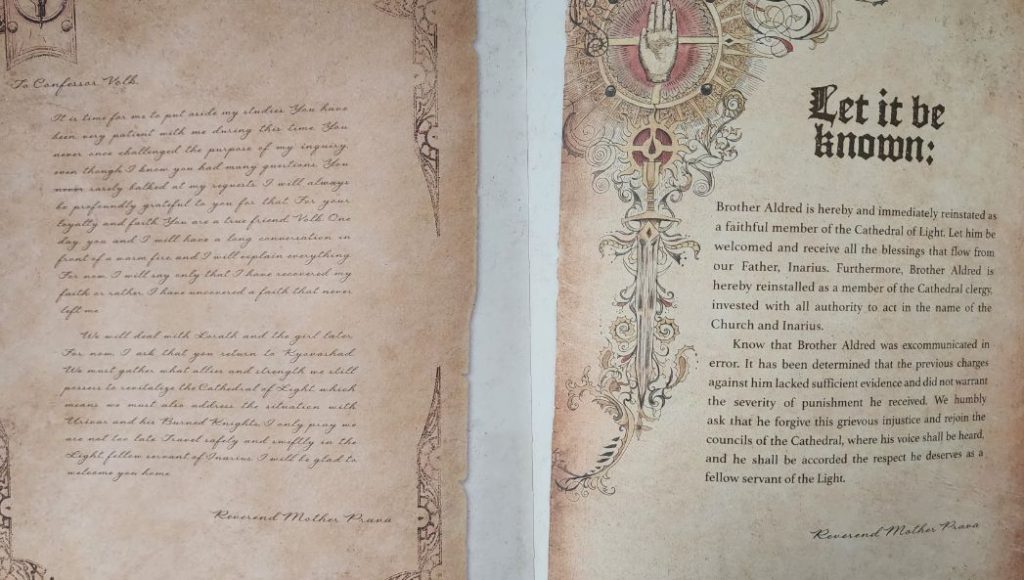 To Confessor Volk,
It is time for me to put aside my studies. You have
been very patient with me during this time. You
never once challenged the purpose of my inquiry,
even though I know you had many questions. You
never rarely balked at my requests. I will always
be profoundly grateful to you for that. For your
loyalty and faith. You are a true friend, Volk. One
day, you and I will have a long conversation in
front of a warm fire and I will explain everything.
For now, I will say only that I have recovered my
faith or rather, I have uncovered a faith that never
left me.
We will deal with Lorath and the girl later.
For now, I ask that you return to Kyovashad.
We must gather what allies and strength we still
possess to revitalize the Cathedral of Light, which
means we must also address the situation with
Urivar and his Burned Knights. I only pray we
are not too late. Travel safely and swiftly in the
Light, fellow servant of Inarius. I will be glad to
welcome you home.
Reverend Mother Prava
Let it be
known:
Brother Aldred is hereby and immediately reinstated as
a faithful member of the Cathedral of Light. Let him be
welcomed and receive all the blessings that flow from
our Father, Inarius. Furthermore, Brother Aldred is
hereby reinstalled as a member of the Cathedral clergy,
invested with all authority to act in the name of the
Church and Inarius.
Know that Brother Aldred was excommunicated in
error. It has been determined that the previous charges
against him lacked sufficient evidence and did not warrant
the severity of punishment he received. We humbly
ask that he forgive this grievous injustice and rejoin the
councils of the Cathedral, where his voice shall be heard,
and he shall be accorded the respect he deserves as a
fellow servant of the Light.
Reverend Mother Prava